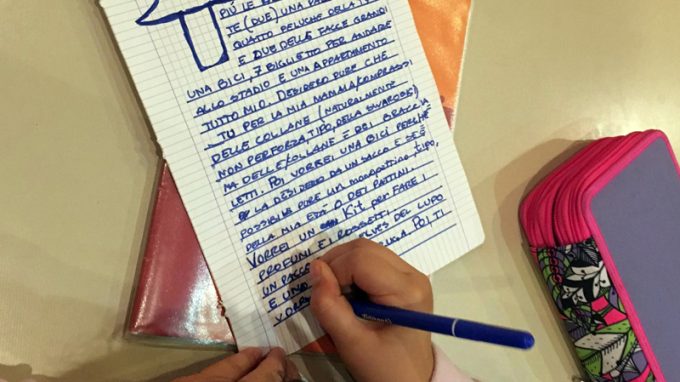 PIÚ LE
TE (DUE) UNA
QUATTRO PELUCHE DELLA
E DUE DELLE FACCE GRANDI
UNA BICI, 7 BIGLIETTO PER ANDARE
ALLO STADIO E UNA APPARTAMENTO
TUTTO MIO. DESIDERO PURE CHE
TU PER LA MIA MAMMA COMPRASSI
DELLE COLLANE (NATURALMENTE
NON PER FORZA TIPO, DELLA SWAROSK)
NA DELLE COLLANE E DEI BRACCIA
LETTI. POI VORREI UNA BICI PERCHÉ
LA DESIDERO DA UN SACCO E SE È
POSSIBILE PURE UN MONOPATTINO TIPO,
DELLA MIA ETÀ O DEI PATTINI.
VORREI UN KIT PER FARE I
PROFUMI E I ROSSETTI,
UN ELVES DEL LUPO
E UNO POI, TI
VORR